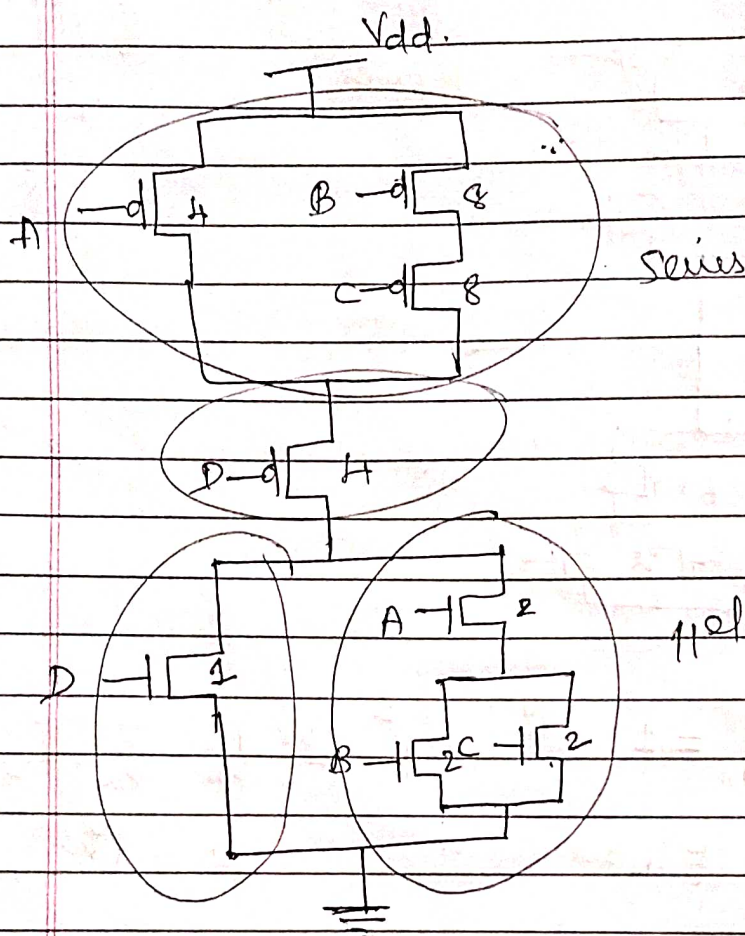 Vdd.
A 4 B 8
C 8
Series
D 4
A 2
11el
D 1
B 2 C 2